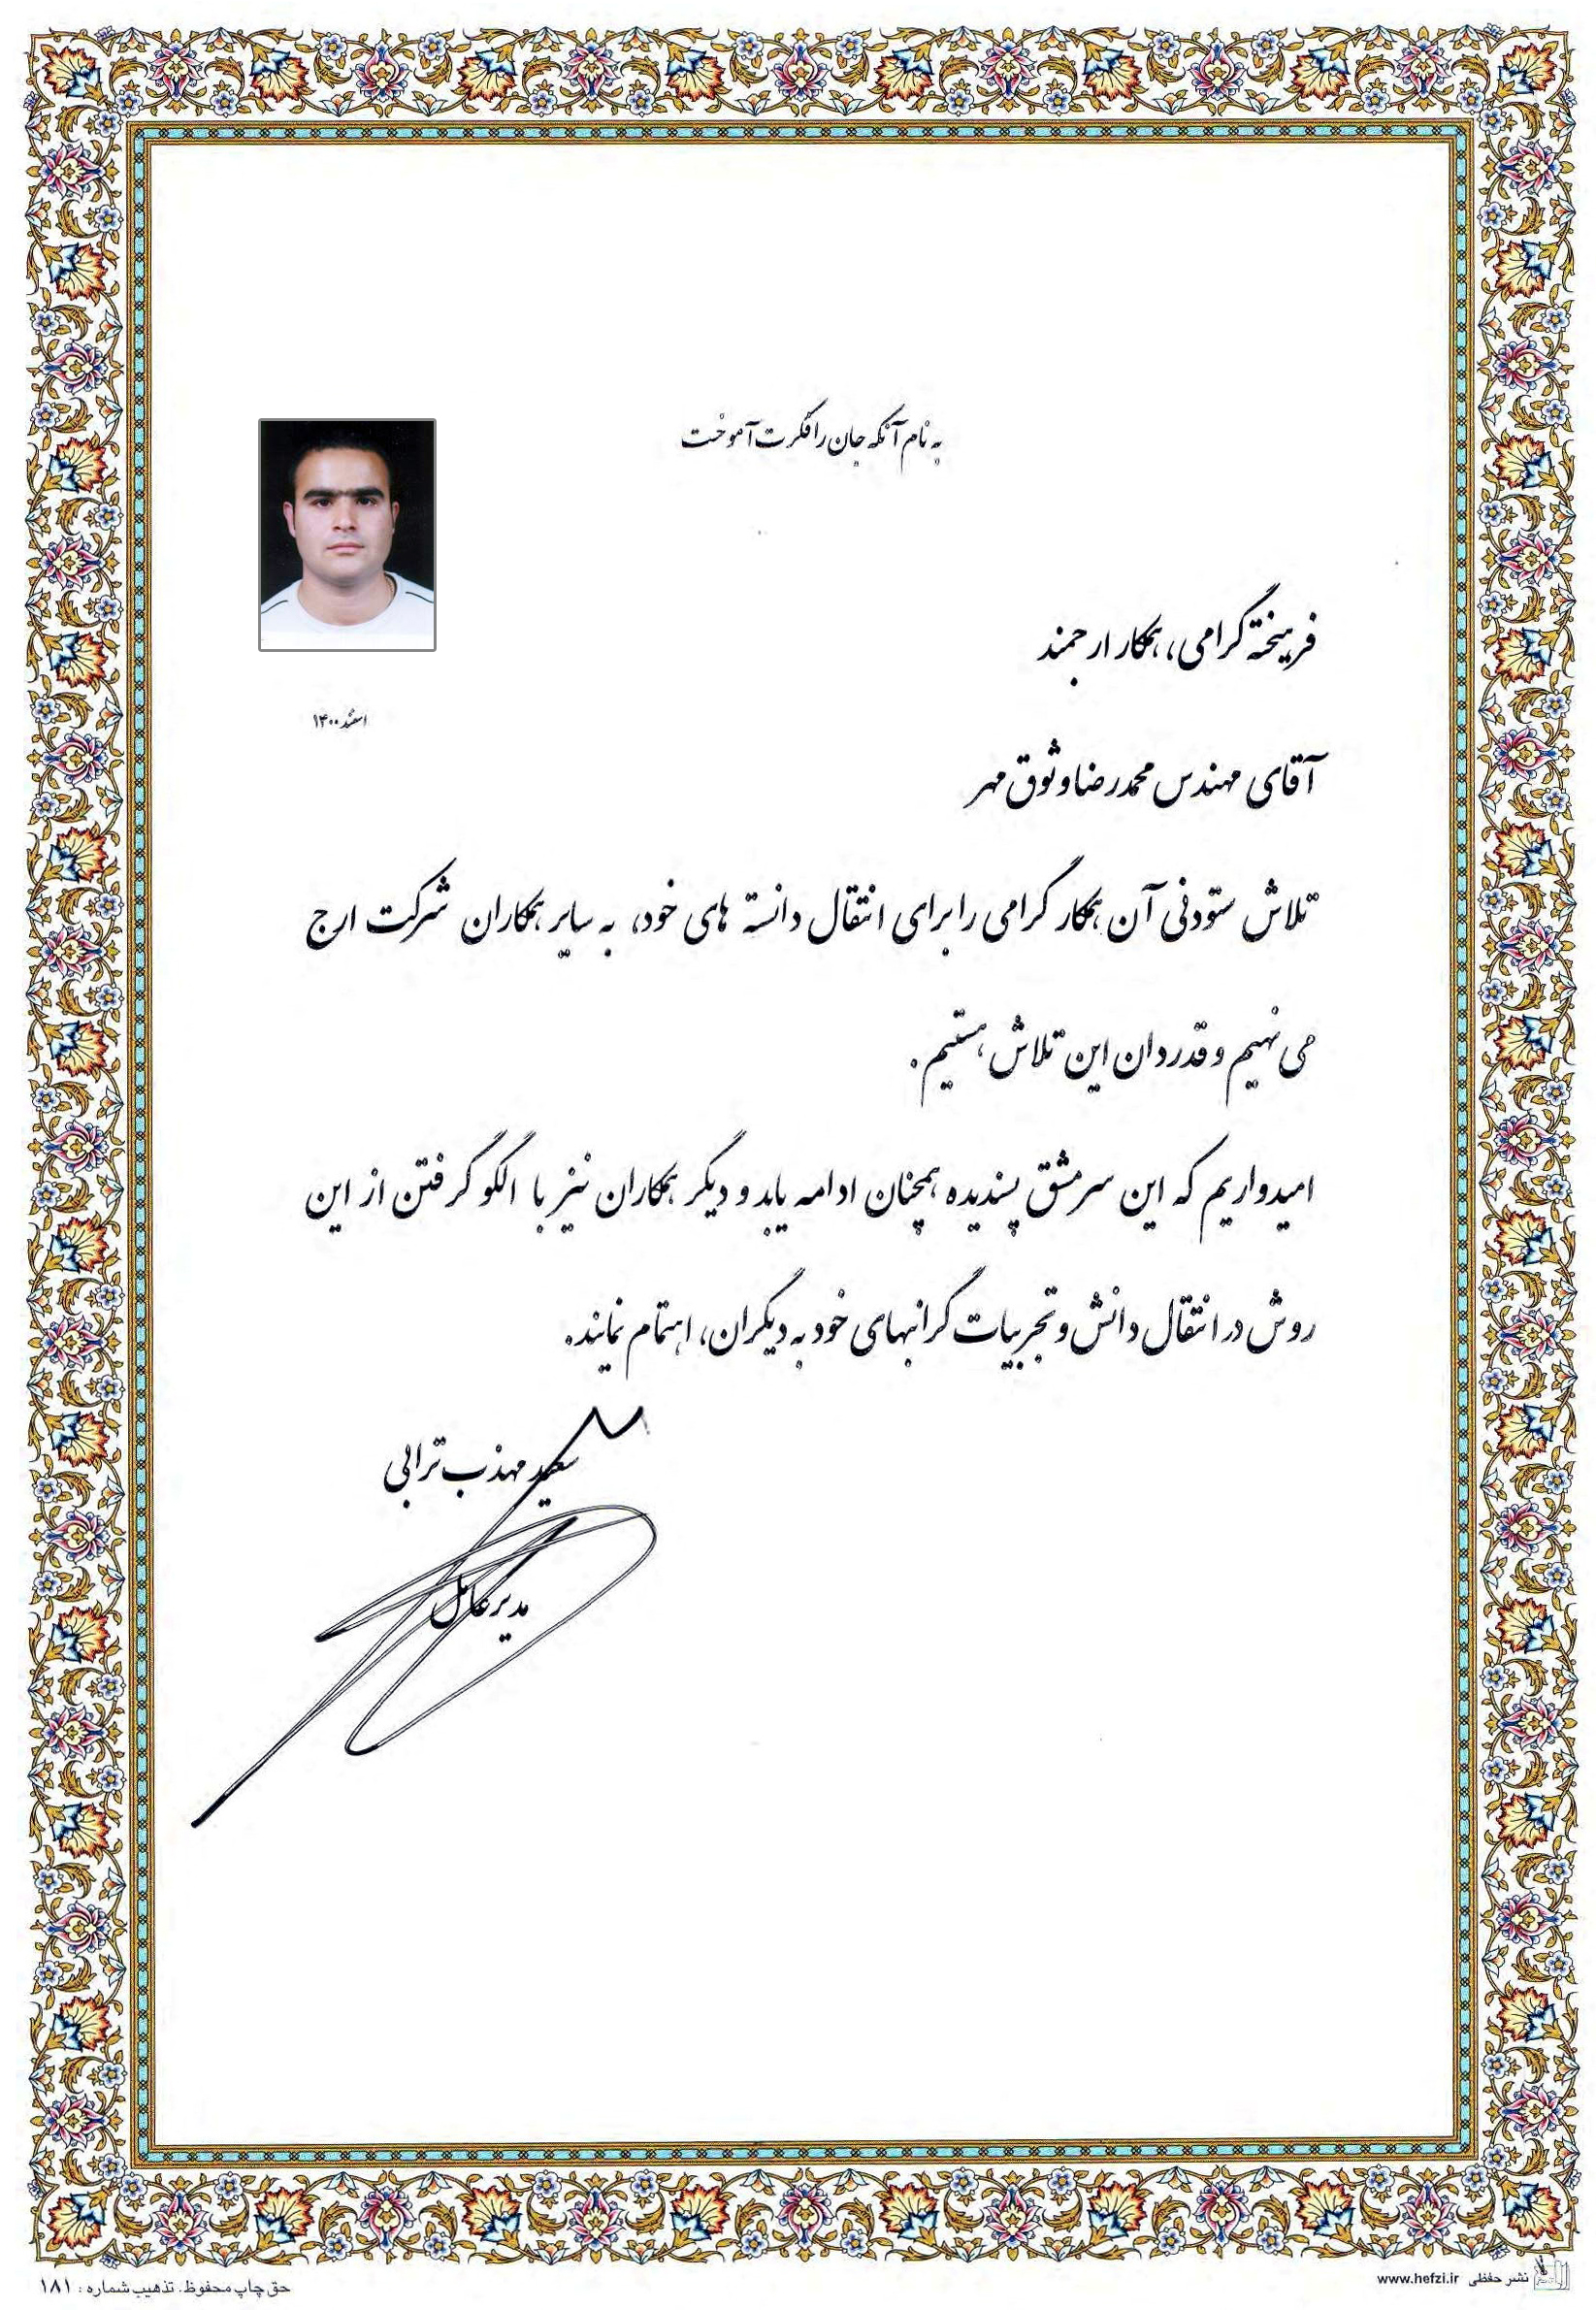 به نام آنکه جان را فکرت آموخت
فرهیخته گرامی، همکار ارجمند
اسفند ۱۴۰۰
آقای مهندس محمدرضا وثوق مهر
تلاش ستودنی آن همکار گرامی را برای انتقال دانسته های خود، به سایر همکاران شرکت ارج
می نهیم و قدردان این تلاش هستیم.
امیدواریم که این سرمشق پسندیده همچنان ادامه یابد و دیگر همکاران نیز با الگو گرفتن از این
روش در انتقال دانش و تجربیات گرانبهای خود به دیگران، اهتمام نمایند.
سعید مهذب ترابی
مدیر عامل
نشر حفظی www.hefzi.ir
حق چاپ محفوظ. تذهیب شماره: ۱۸۱